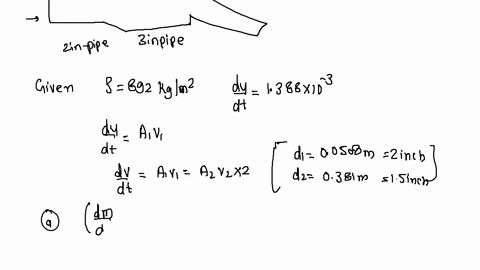 →
2in-pipe 3inpipe
Given ρ = 892 kg/m² dy/dt = 1.388×10⁻³
dy/dt = A₁v₁
dv/dt = A₁v₁ = A₂v₂×2
d₁ = 0.0508m = 2inch
d₂ = 0.381m = 1.5inch
ⓐ (dm/d